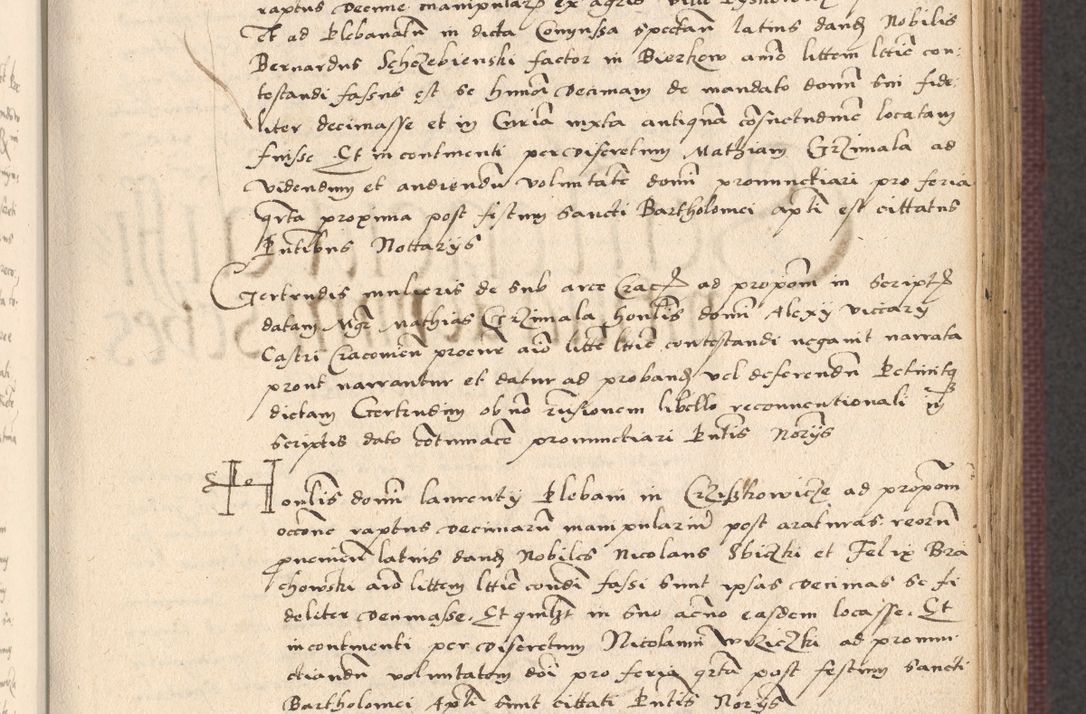 raptus decime manipular ex agris ville
Et ad plebanatum in dicta Comyssa spectan latius dand Nobilis
Bernardus Sęhczebienski factor in Bierkow animo littem lttiē con-
testandi fassus est se hmōi decimam de mandato domni sui fide-
liter decimasse et in Curia iuxta antiquā cōsuetudinē locatam
fuisse Et incontinenti per discretum Mathiam Grzimala ad
videndum et audiendū voluntatē domni pronunctiari pro feria
qrta proxima post festum Sancti Bartholomei apti est cittatus
Pntibus Nottarys
Gertrudis mulieris de sub arce Crac ad propom in script
datam Mgr Mathias Grzimala honlis domni Alexy viccary
Castri Cracovien procur aīo litte lttiē contestandi negavit narrata
prout narrantur et datur ad proband vel deferendū Petivitq
dictam Gertrudim ob nō rūsionem libello reconventionali in
scriptis dato cōtumacē pronunctiari Pntis Norys
Honlis domni laurenty plebani in Crzisskowicze ad propom
occōne raptus decimarū manipulariū post araturas reorū
pveniēn latius dand Nobiles Nicolaus Sbiczki et Felix Bra
chowski aīo littem lttiē condi fassi sunt ipsas decimas se fi
deliter decimasse. Et quilzt in suo agno easdem locasse. Et
incontinenti per discretum Nicolaum Wziczki ad pronun-
ctiandū voluntatem dōi pro feria qrta post festum Sancti
Bartholomei Apti sunt cittati Pntis Norys